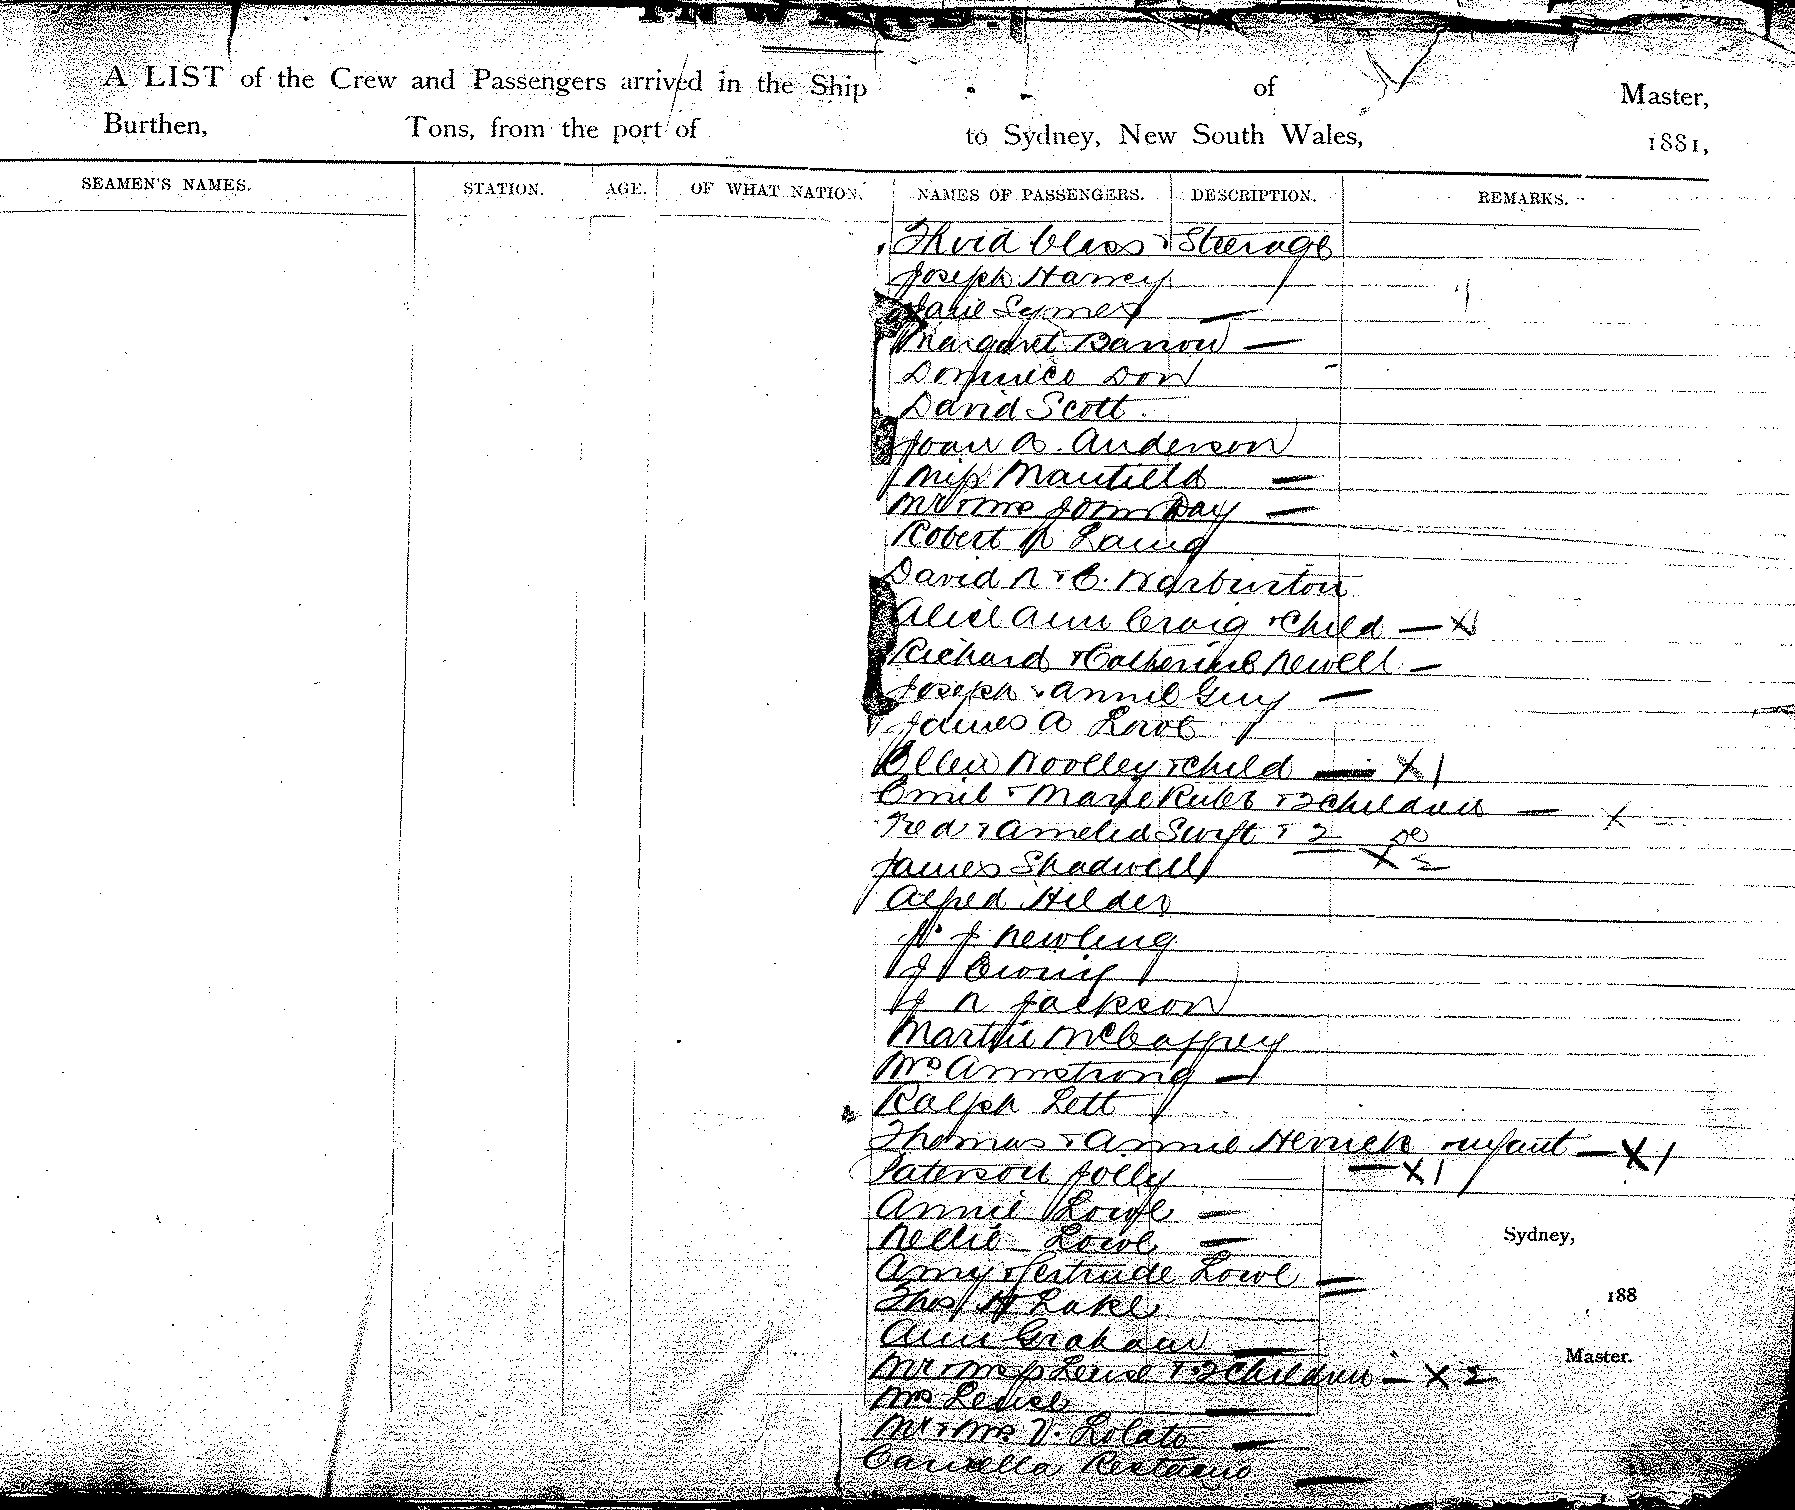 INWARDS.
A LIST of the Crew and Passengers arrived in the Ship of Master,
Burthen, Tons, from the port of to Sydney, New South Wales, 1881,
SEAMEN'S NAMES. STATION. AGE. OF WHAT NATION. NAMES OF PASSENGERS. DESCRIPTION. REMARKS.
Third Class & Steerage
Joseph Harvey
Symes —
Margaret Barrow —
Dominico Don
David Scott
A. Anderson
Miss —
Mr & Mrs John Day —
Robert Laing
David & C. Warburton
Alice Ann Craig & Child — X
Richard & Catherine Newell —
Joseph & Annie Guy —
James A Lowe
Ellen Woolley & child — X 1
Emil & Marie & 2 children — X
Fred & Amelia Swift & 2 do
James Shadwell — X 2
Alfred Hilder
J Newling
J
J W Jackson
Martin McCaffrey
Mrs Armstrong —
Ralph Lett
Thomas & Annie Herrick & infant — X 1
Paterson Jolly — X 1
Annie Lowe —
Nellie Lowe —
Amy & Gertrude Lowe =
Thos H Lake
Ann Graham —
Mr & Mrs & 2 children — X 2
Mrs —
Mr & Mrs V. Lolato —
—
Sydney,
188
Master.